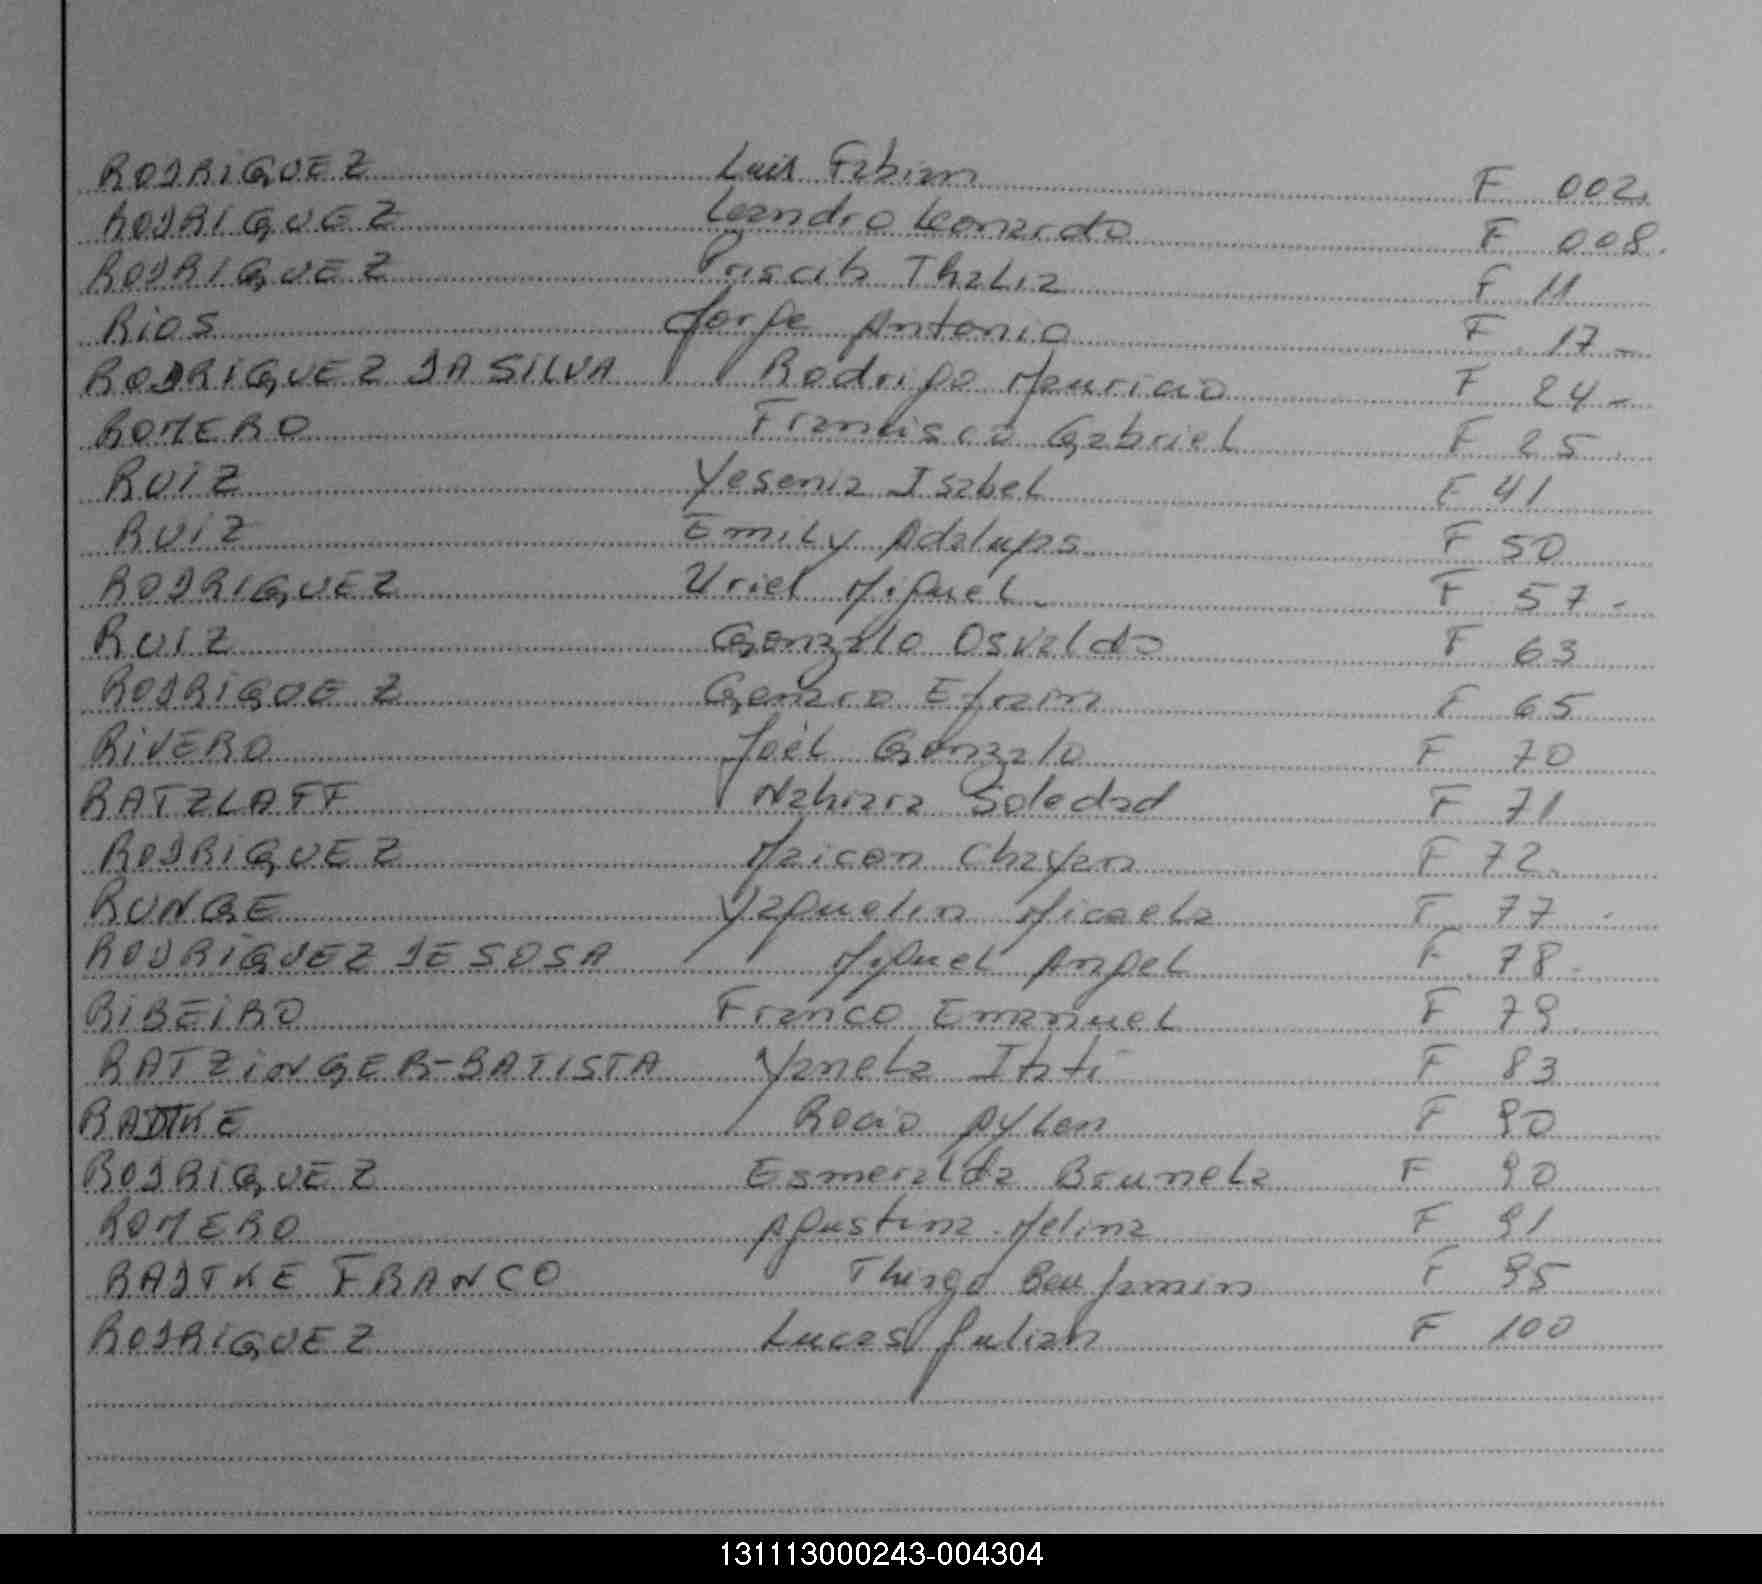 RODRIGUEZ Luis Fabian F 002.
RODRIGUEZ Leandro Leonardo F 008.
RODRIGUEZ Priscila Thalia F 11
RIOS Jorge Antonio F 17-
RODRIGUEZ DA SILVA Rodrigo Mauricio F 24-
ROMERO Francisco Gabriel F 25
RUIZ Yesenia Isabel F 41
RUIZ Emily F 50
RODRIGUEZ Uriel Miguel F 57-
RUIZ Gonzalo Osvaldo F 63
RODRIGUEZ Genaro Efrain F 65
RIVERO Joel Gonzalo F 70
RATZLAFF Nahiara Soledad F 71
RODRIGUEZ Maicon Chayan F 72.
RUNGE Yaquelin Micaela F 77-
RODRIGUEZ DE SOSA Miguel Angel F 78-
RIBEIRO Franco Emanuel F 79
RATZINGER-BATISTA Yanela Itati F 83
RADTKE Rocio Aylen F 90
RODRIGUEZ Esmeralda Brunela F 90
ROMERO Agustina Melina F 91
RADTKE FRANCO Thiago Benjamin F 95
RODRIGUEZ Lucas Julian F 100
131113000243-004304